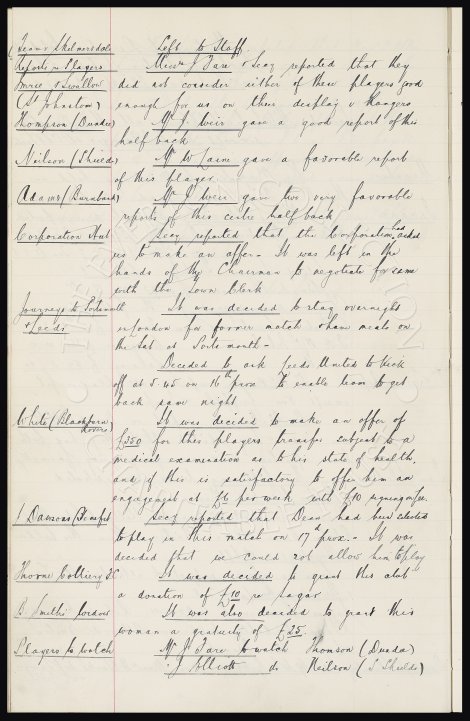 Team v Skelmersdale
Left to Staff.
Reports re Players
Messrs J Fare & Secy reported that they
& Swallow
did not consider either of these players good
(St Johnstone)
enough for us on their display v Rangers
Thompson (Dundee)
Mr J Weir gave a good report of this
half back
Neilson (Shields)
Mr W gave a favorable report
of this player
Adams (Burnbank)
Mr J Weir gave two very favorable
reports of this centre half back
Corporation Hut
Secy reported that the Corporation had asked
us to make an offer. It was left in the
hands of the Chairman to negotiate for same
with the Town Clerk
Journeys to Portsmouth
It was decided to stay overnight
& Leeds
in London for former match & have meals on
the Sat at Portsmouth -
Decided to ask Leeds United to kick
off at 5.45 on 16th prox to enable team to get
back same night
White (Blackburn
Rovers)
It was decided to make an offer of
£350 for this players transfer subject to a
medical examination as to his state of health,
and if this is satisfactory to offer him an
engagement at £6 per week with £10 signing on fee.
J Dawsons Benefit
Secy reported that Dean had been selected
to play in this match on 17th prox. - It was
decided that we could not allow him to play
Thorne Colliery F.C
It was decided to grant this club
a donation of £10 re Sagar
B. Smiths widow
It was also decided to grant this
woman a gratuity of £25.
Players to watch
Mr J Fare to watch Thomson (Dundee)
" J Elliott do Neilson (S Shields)